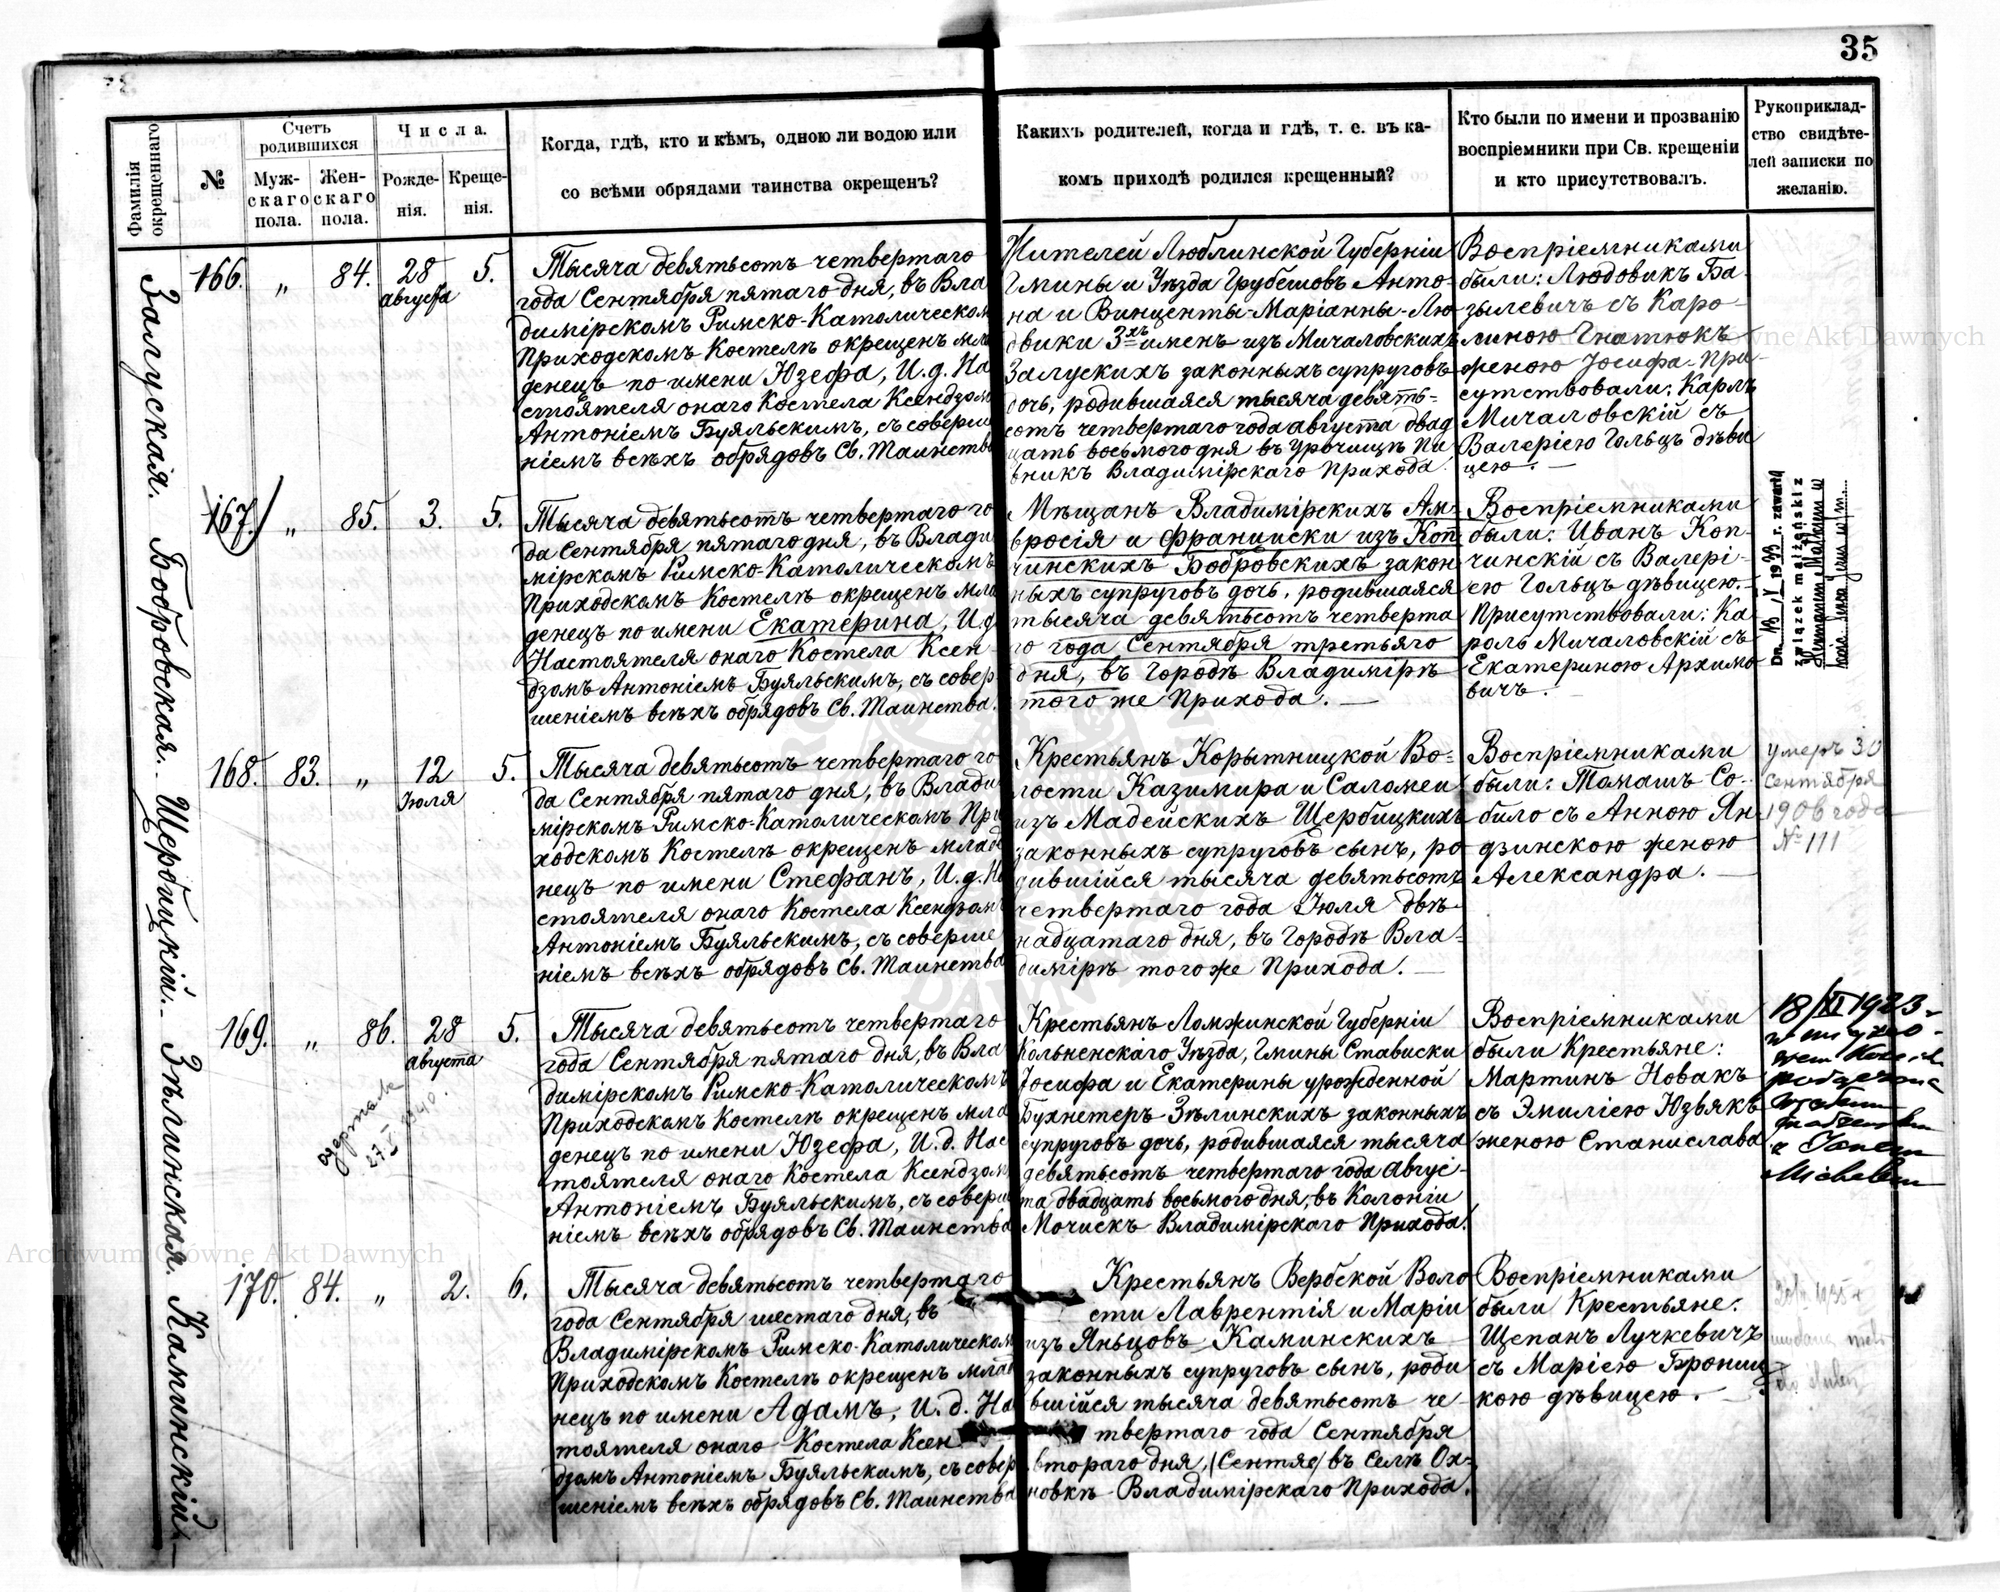 35
Фамилія
окрещеннаго
№
Счетъ
родившихся
Муж-
скаго
пола.
Жен-
скаго
пола.
Числа.
Рожде-
нія.
Креще-
нія.
Когда, гдѣ, кто и кѣмъ, одною ли водою или
со всѣми обрядами таинства окрещенъ?
Какихъ родителей, когда и гдѣ, т. е. въ ка-
комъ приходѣ родился крещенный?
Кто были по имени и прозванію
воспріемники при Св. крещеніи
и кто присутствовалъ.
Рукоприклад-
ство свидѣте-
лей записки по
желанію.
Залуская.
166. „ 84. 28 августа 5.
Тысяча девятьсотъ четвертаго
года Сентября пятаго дня, въ Вла
димірскомъ Римско-Католическом
Приходскомъ Костелѣ окрещенъ мла
денецъ по имени Юзефа, И. д. На
стоятеля онаго Костела Ксендзом
Антоніемъ Буяльскимъ, съ соверше
ніемъ всѣхъ обрядовъ Св. Таинства
Жителей Люблинской Губерніи
Гмины и Уѣзда Грубешовъ Анто-
на и Винценты-Маріанны-Лю
двики 3хъ именъ изъ Мичаловскихъ
Залускихъ законныхъ супруговъ
дочь, родившаяся тысяча девять-
сотъ четвертаго года августа двад
цать восьмого дня въ Урочищѣ Пи
вникъ Владимірскаго Прихода.
Воспріемниками
были: Людовикъ Ба-
зылевичъ съ Каро-
линою Гнатюкъ
женою Іосифа. При-
сутствовали: Карлъ
Мичаловскій съ
Валеріею Гольцъ дѣви
цею. —
Бобровская.
167. „ 85. 3. 5.
Тысяча девятьсотъ четвертаго го
да Сентября пятаго дня, въ Влади
мірскомъ Римско-Католическомъ
Приходскомъ Костелѣ окрещенъ мла
денецъ по имени Екатерина, И. д.
Настоятеля онаго Костела Ксен
дзомъ Антоніемъ Буяльскимъ, съ совер
шеніемъ всѣхъ обрядовъ Св. Таинства.
Мѣщанъ Владимірскихъ Ам-
вросія и Франциски изъ Коп
чинскихъ Бобровскихъ закон
ныхъ супруговъ дочь, родившаяся
тысяча девятьсотъ четверта
го года Сентября третьяго
дня, въ Городѣ Владимірѣ
того же Прихода. —
Воспріемниками
были: Иванъ Коп-
чинскій съ Валері-
ею Гольцъ дѣвицею.-
Присутствовали: Ка-
роль Мичаловскій съ
Екатериною Архимо
вичъ. —
1933 r. zawarła
związek małżeński z
Щербицкій.
168. 83. „ 12 Іюля 5.
Тысяча девятьсотъ четвертаго го
да Сентября пятаго дня, въ Влади
мірскомъ Римско-Католическомъ При
ходскомъ Костелѣ окрещенъ младе
нецъ по имени Стефанъ, И. д. На
стоятеля онаго Костела Ксендзом
Антоніемъ Буяльскимъ, съ соверше
ніемъ всѣхъ обрядовъ Св. Таинства
Крестьянъ Корытницкой Во-
лости Казимира и Саломеи
изъ Мадейскихъ Щербицкихъ
законныхъ супруговъ сынъ, ро
дившійся тысяча девятьсотъ
четвертаго года Іюля двѣ-
надцатаго дня, въ Городѣ Вла-
димірѣ того же Прихода. —
Воспріемниками
были: Томашъ Со-
било съ Анною Ян-
дзинскою женою
Александра. —
умеръ 30
Сентября
1906 года
№ 111
Зѣлинская.
169. „ 86. 28 августа 5.
Тысяча девятьсотъ четвертаго
года Сентября пятаго дня, въ Вла
димірскомъ Римско-Католическомъ
Приходскомъ Костелѣ окрещенъ мла
денецъ по имени Юзефа, И. д. Нас
тоятеля онаго Костела Ксендзом
Антоніемъ Буяльскимъ, съ соверше
ніемъ всѣхъ обрядовъ Св. Таинства
Крестьянъ Ломжинской Губерніи
Кольненскаго Уѣзда, Гмины Стависки
Іосифа и Екатерины урожденной
Бухнетеръ Зѣлинскихъ законныхъ
супруговъ дочь, родившаяся тысяча
девятьсотъ четвертаго года Авгус-
та двадцать восьмого дня, въ Колоніи
Мочискъ Владимірскаго Прихода.
Воспріемниками
были Крестьяне:
Мартинъ Новакъ
съ Эмиліею Юзвякъ
женою Станислава
18/XI 1923
Michałem
Каминскій
170. 84. „ 2. 6.
Тысяча девятьсотъ четвертаго
года Сентября шестаго дня, въ
Владимірскомъ Римско-Католическом
Приходскомъ Костелѣ окрещенъ младе
нецъ по имени Адамъ, И. д. На
тоятеля онаго Костела Ксен
дзомъ Антоніемъ Буяльскимъ, съ совер
шеніемъ всѣхъ обрядовъ Св. Таинства
Крестьянъ Вербской Воло
сти Лаврентія и Маріи
изъ Яньцовъ Каминскихъ
законныхъ супруговъ сынъ, роди
вшійся тысяча девятьсотъ че-
твертаго года Сентября
втораго дня, въ Селѣ Ох-
новкѣ Владимірскаго Прихода.
Воспріемниками
были Крестьяне:
Щепанъ Лучкевичъ
съ Маріею Брониц
кою дѣвицею. —
Archiwum Główne Akt Dawnych
Archiwum Główne Akt Dawnych